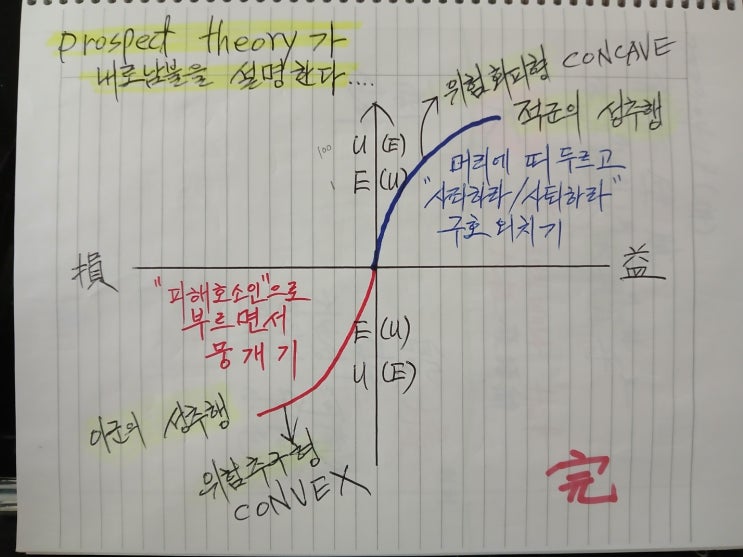 prospect theory가
내로남불을 설명한다....
위험회피형 CONCAVE
적군의 성추행
100
U (E)
E (U)
머리에 띠 두르고
"사퇴하라/사퇴하라"
구호 외치기
損
益
"피해호소인"으로
부르면서
뭉개기
E (U)
U (E)
아군의 성추행
위험추구형
CONVEX
完